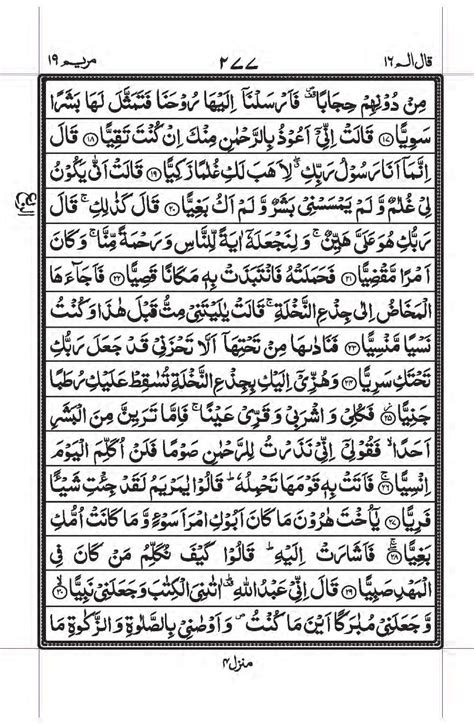 قال الم ١٦ ٢٧٧ مریم ١٩
مِنْ دُوْنِهِمْ حِجَابًا۪ۛ فَاَرْسَلْنَاۤ اِلَيْهَا رُوْحَنَا فَتَمَثَّلَ لَهَا بَشَرًا
سَوِيًّا ﴿۱۷﴾ قَالَتْ اِنِّيْۤ اَعُوْذُ بِالرَّحْمٰنِ مِنْكَ اِنْ كُنْتَ تَقِيًّا ﴿۱۸﴾ قَالَ
اِنَّمَاۤ اَنَا رَسُوْلُ رَبِّكِ ۖۗ لِاَهَبَ لَكِ غُلٰمًا زَكِيًّا ﴿۱۹﴾ قَالَتْ اَنّٰى يَكُوْنُ
لِيْ غُلٰمٌ وَّ لَمْ يَمْسَسْنِيْ بَشَرٌ وَّ لَمْ اَكُ بَغِيًّا ﴿۲۰﴾ قَالَ كَذٰلِكِ ۚ قَالَ
رَبُّكِ هُوَ عَلَيَّ هَيِّنٌ ۚ وَ لِنَجْعَلَهٗۤ اٰيَةً لِّلنَّاسِ وَ رَحْمَةً مِّنَّا ۚ وَ كَانَ
اَمْرًا مَّقْضِيًّا ﴿۲۱﴾ فَحَمَلَتْهُ فَانْتَبَذَتْ بِهٖ مَكَانًا قَصِيًّا ﴿۲۲﴾ فَاَجَآءَهَا
الْمَخَاضُ اِلٰى جِذْعِ النَّخْلَةِ ۚ قَالَتْ يٰلَيْتَنِيْ مِتُّ قَبْلَ هٰذَا وَ كُنْتُ
نَسْيًا مَّنْسِيًّا ﴿۲۳﴾ فَنَادٰىهَا مِنْ تَحْتِهَاۤ اَلَّا تَحْزَنِيْ قَدْ جَعَلَ رَبُّكِ
تَحْتَكِ سَرِيًّا ﴿۲۴﴾ وَ هُزِّيْۤ اِلَيْكِ بِجِذْعِ النَّخْلَةِ تُسٰقِطْ عَلَيْكِ رُطَبًا
جَنِيًّا ﴿۲۵﴾ فَكُلِيْ وَ اشْرَبِيْ وَ قَرِّيْ عَيْنًا ۚ فَاِمَّا تَرَيِنَّ مِنَ الْبَشَرِ
اَحَدًا ۙ فَقُوْلِيْۤ اِنِّيْ نَذَرْتُ لِلرَّحْمٰنِ صَوْمًا فَلَنْ اُكَلِّمَ الْيَوْمَ
اِنْسِيًّا ﴿۲۶﴾ فَاَتَتْ بِهٖ قَوْمَهَا تَحْمِلُهٗ ؕ قَالُوْا يٰمَرْيَمُ لَقَدْ جِئْتِ شَيْـًٔا
فَرِيًّا ﴿۲۷﴾ يٰۤاُخْتَ هٰرُوْنَ مَا كَانَ اَبُوْكِ امْرَاَ سَوْءٍ وَّ مَا كَانَتْ اُمُّكِ
بَغِيًّا ﴿۲۸﴾ فَاَشَارَتْ اِلَيْهِ ؕ قَالُوْا كَيْفَ نُكَلِّمُ مَنْ كَانَ فِي
الْمَهْدِ صَبِيًّا ﴿۲۹﴾ قَالَ اِنِّيْ عَبْدُ اللّٰهِ ۪ۛ اٰتٰىنِيَ الْكِتٰبَ وَ جَعَلَنِيْ نَبِيًّا ﴿۳۰﴾
وَّ جَعَلَنِيْ مُبٰرَكًا اَيْنَ مَا كُنْتُ ۪ وَ اَوْصٰنِيْ بِالصَّلٰوةِ وَ الزَّكٰوةِ مَا
منزل ٤